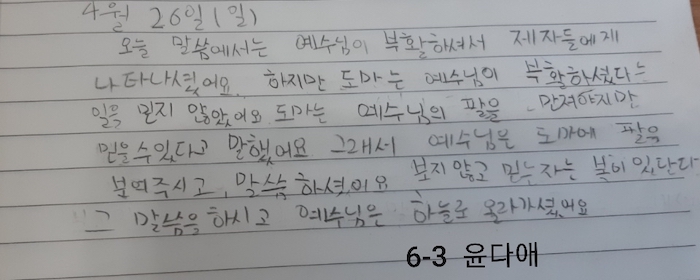 4월 26일(일)
오늘 말씀에서는 예수님이 부활하셔서 제자들에게
나타나셨어요. 하지만 도마는 예수님이 부활하셨다는
일을 믿지 않았어요 도마는 예수님의 팔을 만져야지만
믿을수있다고 말했어요 그래서 예수님은 도마에 팔을
보여주시고, 말씀하셨어요 보지않고 믿는자는 복이있단다
그 말씀을하시고 예수님은 하늘로 올라가셨어요
6-3 윤다애